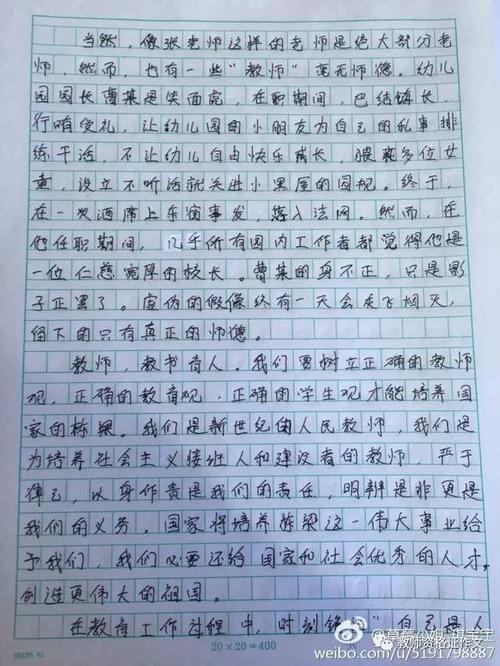 当然，像张老师这样的老师是绝大部分老
师，然而，也有一些“教师”毫无师德。幼儿
园园长曹某是笑面虎，在职期间，巴结镇长，
行贿受礼，让幼儿园的小朋友为自己的私事排
练干活，不让幼儿自由快乐成长，猥亵多位女
童，设立不听话就关进小黑屋的园规。终于，
在一次酒席上东窗事发，落入法网。然而，在
他任职期间，几乎所有园内工作者都觉得他是
一位仁慈宽厚的校长。曹某的身不正，只是影
子正罢了。虚伪的假像终有一天会灰飞烟灭，
留下的只有真正的师德。
教师，教书育人。我们要树立正确的教师
观，正确的教育观，正确的学生观才能培养国
家的栋梁。我们是新世纪的人民教师，我们是
为培养社会主义接班人和建设者的教师，严于
律己，以身作责是我们的责任，明辨是非更是
我们的义务。国家将培养栋梁这一伟大事业给
予我们，我们必要还给国家和社会优秀的人才，
创造更伟大的祖国。
在教育工作过程中，时刻铭“自己是人
20×20=400
教师资格证作文
weibo.com/u/5191798887